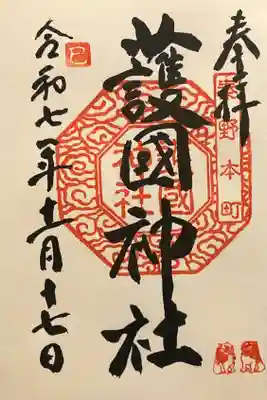 奉拝
野本町
護國神社
令和七年十一月十七日
巳